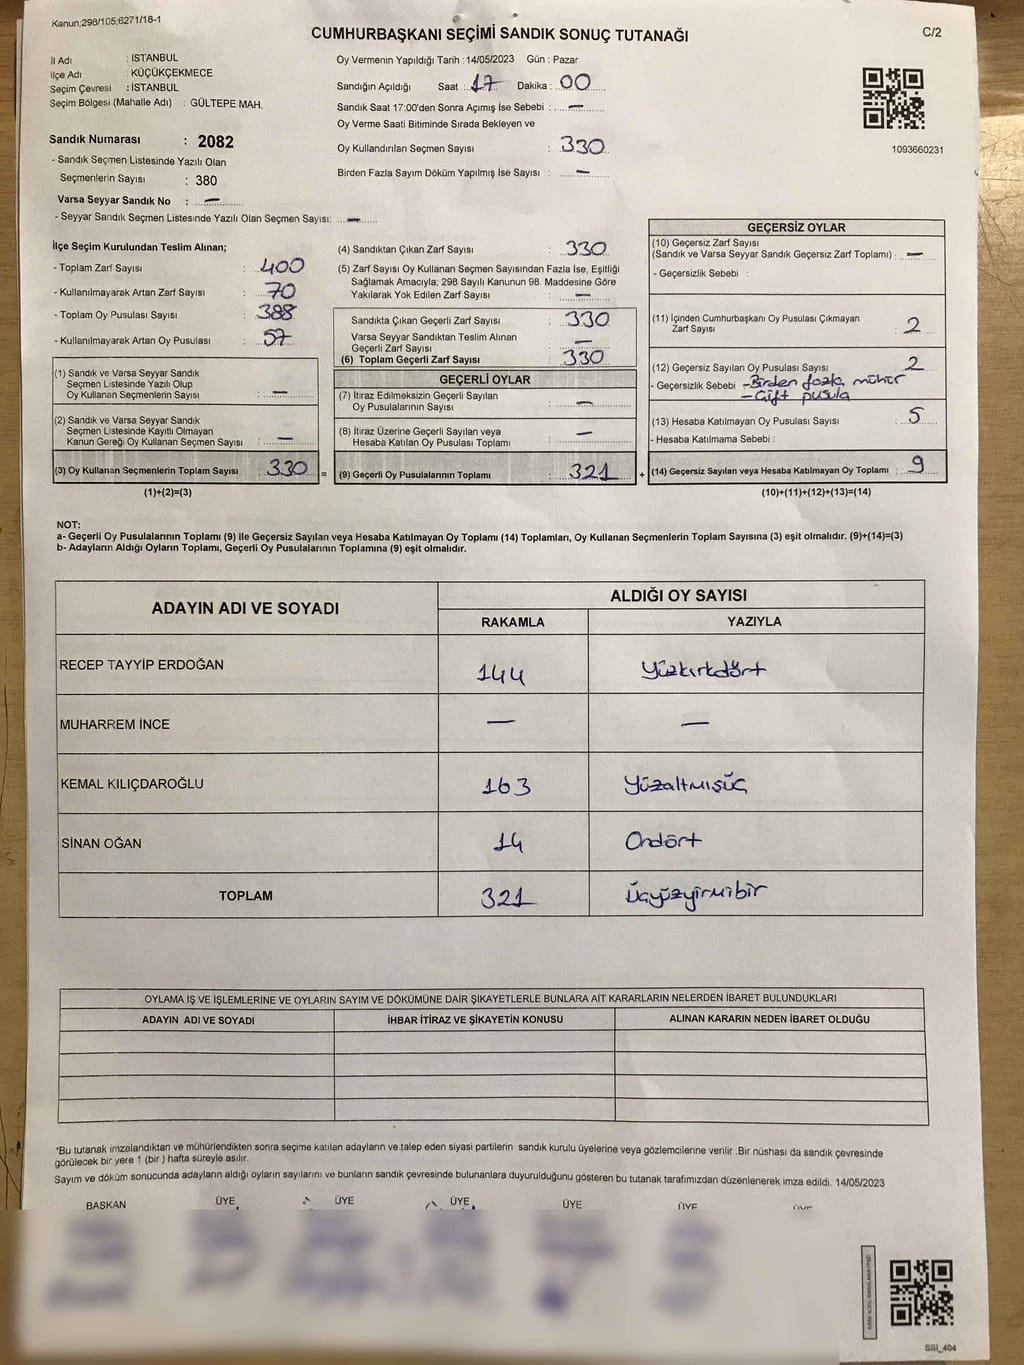 Kanun;298/105;6271/18-1
CUMHURBAŞKANI SEÇİMİ SANDIK SONUÇ TUTANAĞI
C/2
İl Adı : İSTANBUL
İlçe Adı : KÜÇÜKÇEKMECE
Seçim Çevresi : İSTANBUL
Seçim Bölgesi (Mahalle Adı) : GÜLTEPE MAH.
Oy Vermenin Yapıldığı Tarih : 14/05/2023 Gün : Pazar
Sandığın Açıldığı Saat : 17 Dakika : 00
Sandık Saat 17:00'den Sonra Açımış İse Sebebi : —
Oy Verme Saati Bitiminde Sırada Bekleyen ve
Oy Kullandırılan Seçmen Sayısı : 330
Birden Fazla Sayım Döküm Yapılmış İse Sayısı : —
1093660231
Sandık Numarası : 2082
- Sandık Seçmen Listesinde Yazılı Olan
Seçmenlerin Sayısı : 380
Varsa Seyyar Sandık No : —
- Seyyar Sandık Seçmen Listesinde Yazılı Olan Seçmen Sayısı: —
İlçe Seçim Kurulundan Teslim Alınan;
- Toplam Zarf Sayısı : 400
- Kullanılmayarak Artan Zarf Sayısı : 70
- Toplam Oy Pusulası Sayısı : 388
- Kullanılmayarak Artan Oy Pusulası : 57
(1) Sandık ve Varsa Seyyar Sandık
Seçmen Listesinde Yazılı Olup
Oy Kullanan Seçmenlerin Sayısı : —
(2) Sandık ve Varsa Seyyar Sandık
Seçmen Listesinde Kayıtlı Olmayan
Kanun Gereği Oy Kullanan Seçmen Sayısı : —
(3) Oy Kullanan Seçmenlerin Toplam Sayısı : 330 =
(1)+(2)=(3)
(4) Sandıktan Çıkan Zarf Sayısı : 330
(5) Zarf Sayısı Oy Kullanan Seçmen Sayısından Fazla İse, Eşitliği
Sağlamak Amacıyla; 298 Sayılı Kanunun 98. Maddesine Göre
Yakılarak Yok Edilen Zarf Sayısı : —
Sandıkta Çıkan Geçerli Zarf Sayısı : 330
Varsa Seyyar Sandıktan Teslim Alınan
Geçerli Zarf Sayısı : —
(6) Toplam Geçerli Zarf Sayısı : 330
GEÇERLİ OYLAR
(7) İtiraz Edilmeksizin Geçerli Sayılan
Oy Pusulalarının Sayısı : —
(8) İtiraz Üzerine Geçerli Sayılan veya
Hesaba Katılan Oy Pusulası Toplamı : —
(9) Geçerli Oy Pusulalarının Toplamı : 321 +
GEÇERSİZ OYLAR
(10) Geçersiz Zarf Sayısı
(Sandık ve Varsa Seyyar Sandık Geçersiz Zarf Toplamı) : —
- Geçersizlik Sebebi :
(11) İçinden Cumhurbaşkanı Oy Pusulası Çıkmayan
Zarf Sayısı : 2
(12) Geçersiz Sayılan Oy Pusulası Sayısı : 2
- Geçersizlik Sebebi - Birden fazla mühür
- Çift pusula
(13) Hesaba Katılmayan Oy Pusulası Sayısı : 5
- Hesaba Katılmama Sebebi :
(14) Geçersiz Sayılan veya Hesaba Katılmayan Oy Toplamı : 9
(10)+(11)+(12)+(13)=(14)
NOT:
a- Geçerli Oy Pusulalarının Toplamı (9) ile Geçersiz Sayılan veya Hesaba Katılmayan Oy Toplamı (14) Toplamları, Oy Kullanan Seçmenlerin Toplam Sayısına (3) eşit olmalıdır. (9)+(14)=(3)
b- Adayların Aldığı Oyların Toplamı, Geçerli Oy Pusulalarının Toplamına (9) eşit olmalıdır.
ADAYIN ADI VE SOYADI
ALDIĞI OY SAYISI
RAKAMLA YAZIYLA
RECEP TAYYİP ERDOĞAN 144 Yüzkırkdört
MUHARREM İNCE — —
KEMAL KILIÇDAROĞLU 163 Yüzaltmışüç
SİNAN OĞAN 14 Ondört
TOPLAM 321 Üçyüzyirmibir
OYLAMA İŞ VE İŞLEMLERİNE VE OYLARIN SAYIM VE DÖKÜMÜNE DAİR ŞİKAYETLERLE BUNLARA AİT KARARLARIN NELERDEN İBARET BULUNDUKLARI
ADAYIN ADI VE SOYADI İHBAR İTİRAZ VE ŞİKAYETİN KONUSU ALINAN KARARIN NEDEN İBARET OLDUĞU
*Bu tutanak imzalandıktan ve mühürlendikten sonra seçime katılan adayların ve talep eden siyasi partilerin sandık kurulu üyelerine veya gözlemcilerine verilir .Bir nüshası da sandık çevresinde
görülecek bir yere 1 (bir ) hafta süreyle asılır.
Sayım ve döküm sonucunda adayların aldığı oyların sayılarını ve bunların sandık çevresinde bulunanlara duyurulduğunu gösteren bu tutanak tarafımızdan düzenlenerek imza edildi. 14/05/2023
BAŞKAN ÜYE ÜYE ÜYE ÜYE ÜYE ÜYE
SSI_404